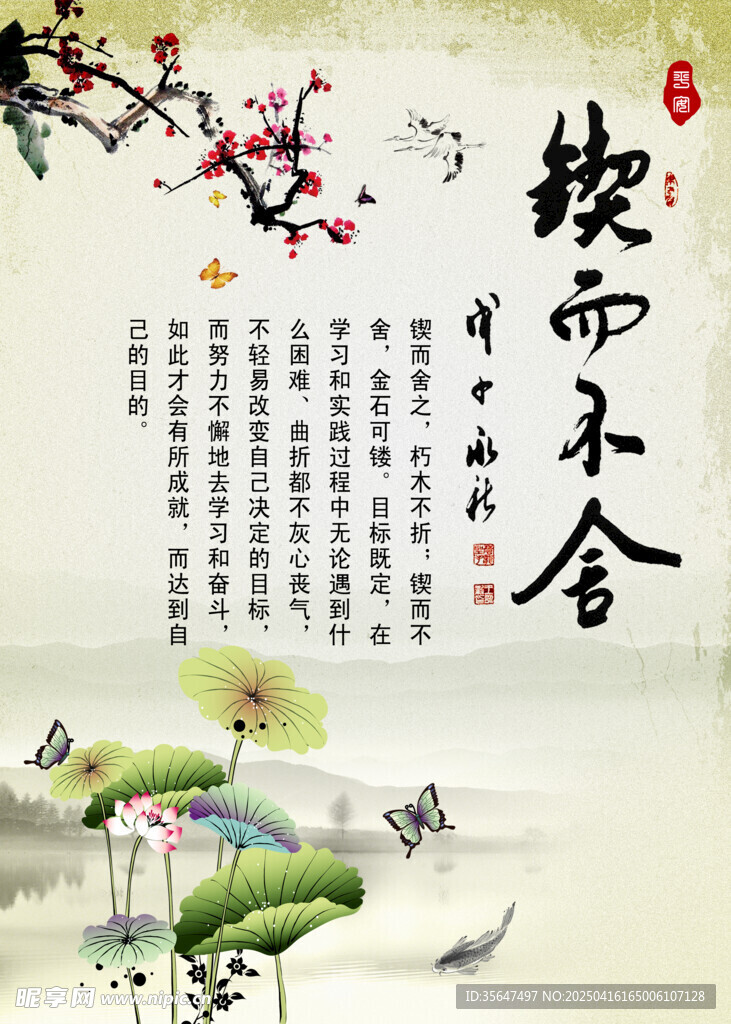 平安
锲而不舍
戊子永秋
锲而舍之，朽木不折；锲而不
舍，金石可镂。目标既定，在
学习和实践过程中无论遇到什
么困难、曲折都不灰心丧气，
不轻易改变自己决定的目标，
而努力不懈地去学习和奋斗，
如此才会有所成就，而达到自
己的目的。
昵享网 www.nipic.cn
ID:35647497 NO:20250416165006107128